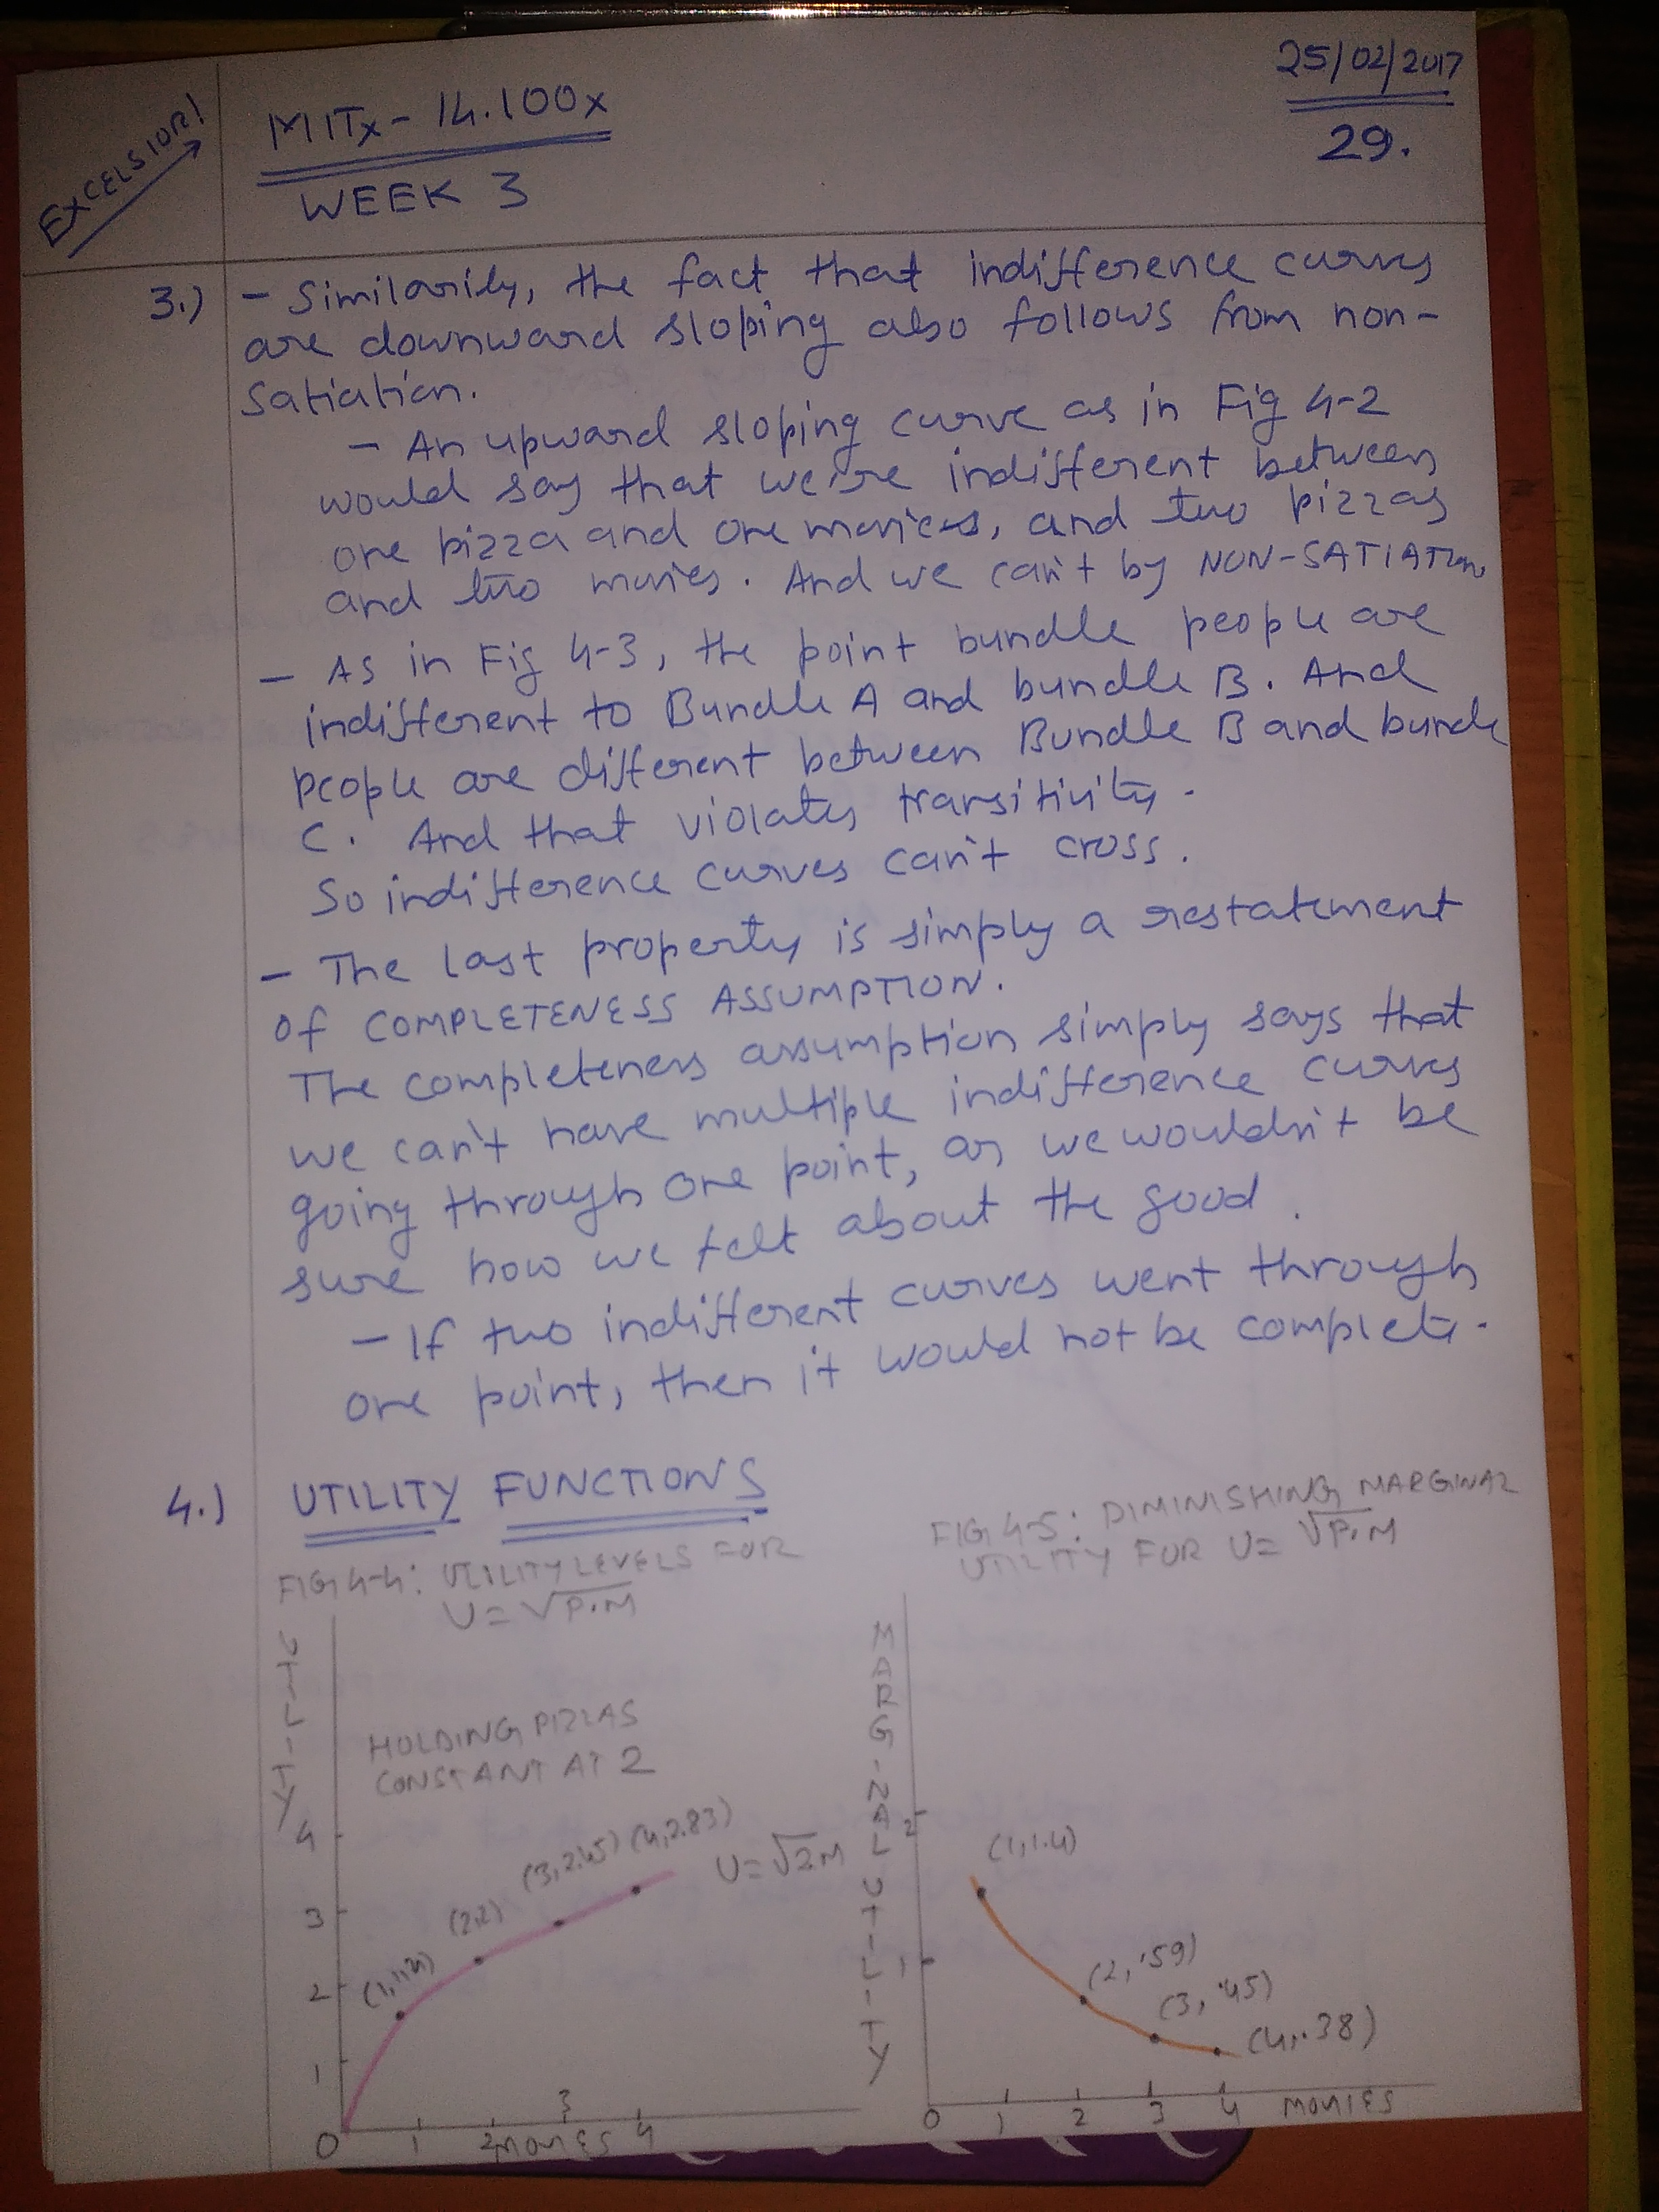 EXCELSIOR!
MITx - 14.100x
WEEK 3
25/02/2017
29.
3.) - Similarily, the fact that indifference curves
are downward sloping also follows from non-
satiation.
- An upward sloping curve as in Fig 4-2
would say that we're indifferent between
one pizza and one movies, and two pizzas
and two movies. And we can't by NON-SATIATION
- As in Fig 4-3, the point bundle people are
indifferent to Bundle A and bundle B. And
people are different between Bundle B and bundle
C. And that violates transitivity.
So indifference curves can't cross.
- The last property is simply a restatement
of COMPLETENESS ASSUMPTION.
The completeness assumption simply says that
we can't have multiple indifference curves
going through one point, as we wouldn't be
sure how we felt about the good.
- If two indifferent curves went through
one point, then it would not be complete.
4.) UTILITY FUNCTIONS
FIG 4-4: UTILITY LEVELS FOR
U = √P.M
UTILITY
HOLDING PIZZAS
CONSTANT AT 2
4
3
2
1
0
(1,1.4)
(2,2)
(3,2.45) (4,2.83)
U = √2M
1 2 3 4
MOVIES
FIG 4-5: DIMINISHING MARGINAL
UTILITY FOR U = √P.M
MARGINAL UTILITY
2
1
(1,1.4)
(2,.59)
(3,.45)
(4,.38)
0 1 2 3 4 MOVIES